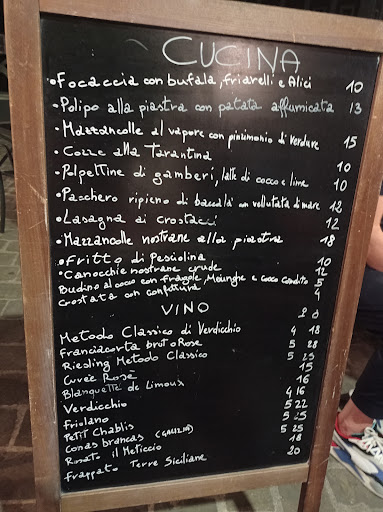 CUCINA
• Focaccia con bufala, friarelli e Alici 10
• Polipo alla piastra con patata affumicata 13
• Mazzancolle al vapore con pinzimonio di verdure 15
• Cozze alla Tarantina 10
• Polpettine di gamberi, latte di cocco e lime 10
• Pacchero ripieno di baccalà con vellutata di mare 12
• Lasagna ai crostacei 12
• Mazzancolle nostrane alla piastra 18
• Fritto di Pesciolina 10
• Canocchie nostrane crude 12
Budino al cocco con fragole, Meringhe e cocco candito 5
Crostata con confettura 4
VINO
Metodo Classico di Verdicchio 4 18
Franciacorta bruto Rose 5 28
Riesling Metodo Classico 5 25
Cuveè Rosè 15
Blanquette de Limoux 16
Verdicchio 4 16
Friolano 5 22
Petit Chablis 5 25
Conas brancas (GALIZIA) 5 25
Rosato il Meticcio 18
Frappato Terre Siciliane 20